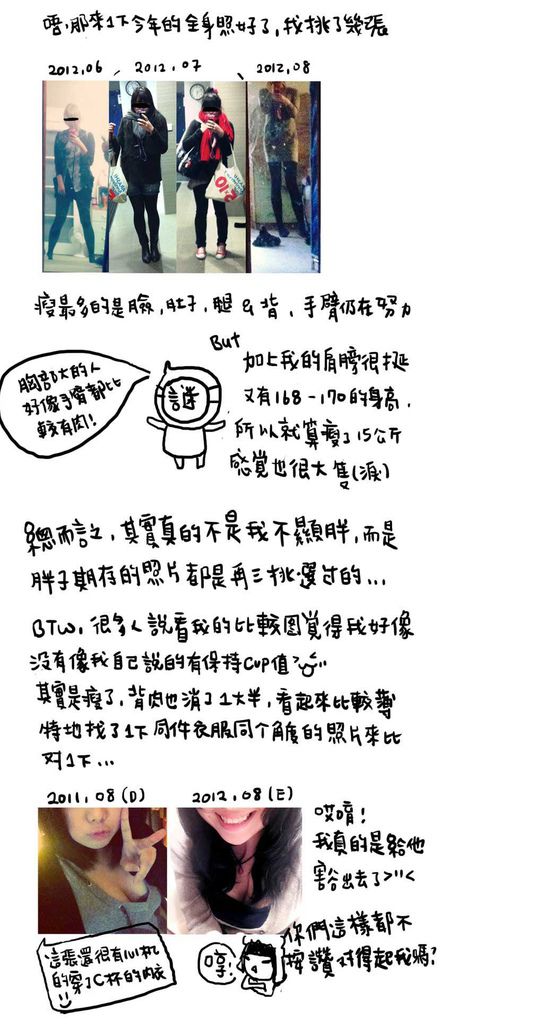 唔,那來1下今年的全身照好了,我挑了幾張
2012.06
2012.07
2012.08
瘦最多的是臉,肚子,腿&背,手臂仍在努力
But
加上我的肩膀很挺
又有168-170的身高,
所以就算瘦了15公斤
感覺也很大隻(淚)
胸部大的人
好像手臂都比
較有肉!
謎
總而言之,其實真的不是我不顯胖,而是
胖子期存的照片都是再三挑選過的...
BTW,很多人說看我的比較圖覺得我好像
沒有像我自己說的有保持cup值?
其實是瘦了,背肉也消了1大半,看起來比較薄
特地找了1下同件衣服同個角度的照片來比
對1下...
2011.08(D)
2012.08(E)
哎唷!
我真的是給他
豁出去了>"<
你們這樣都不
按讚對得起我嗎?
哼!
這張還很有心机
的穿了C杯的內衣